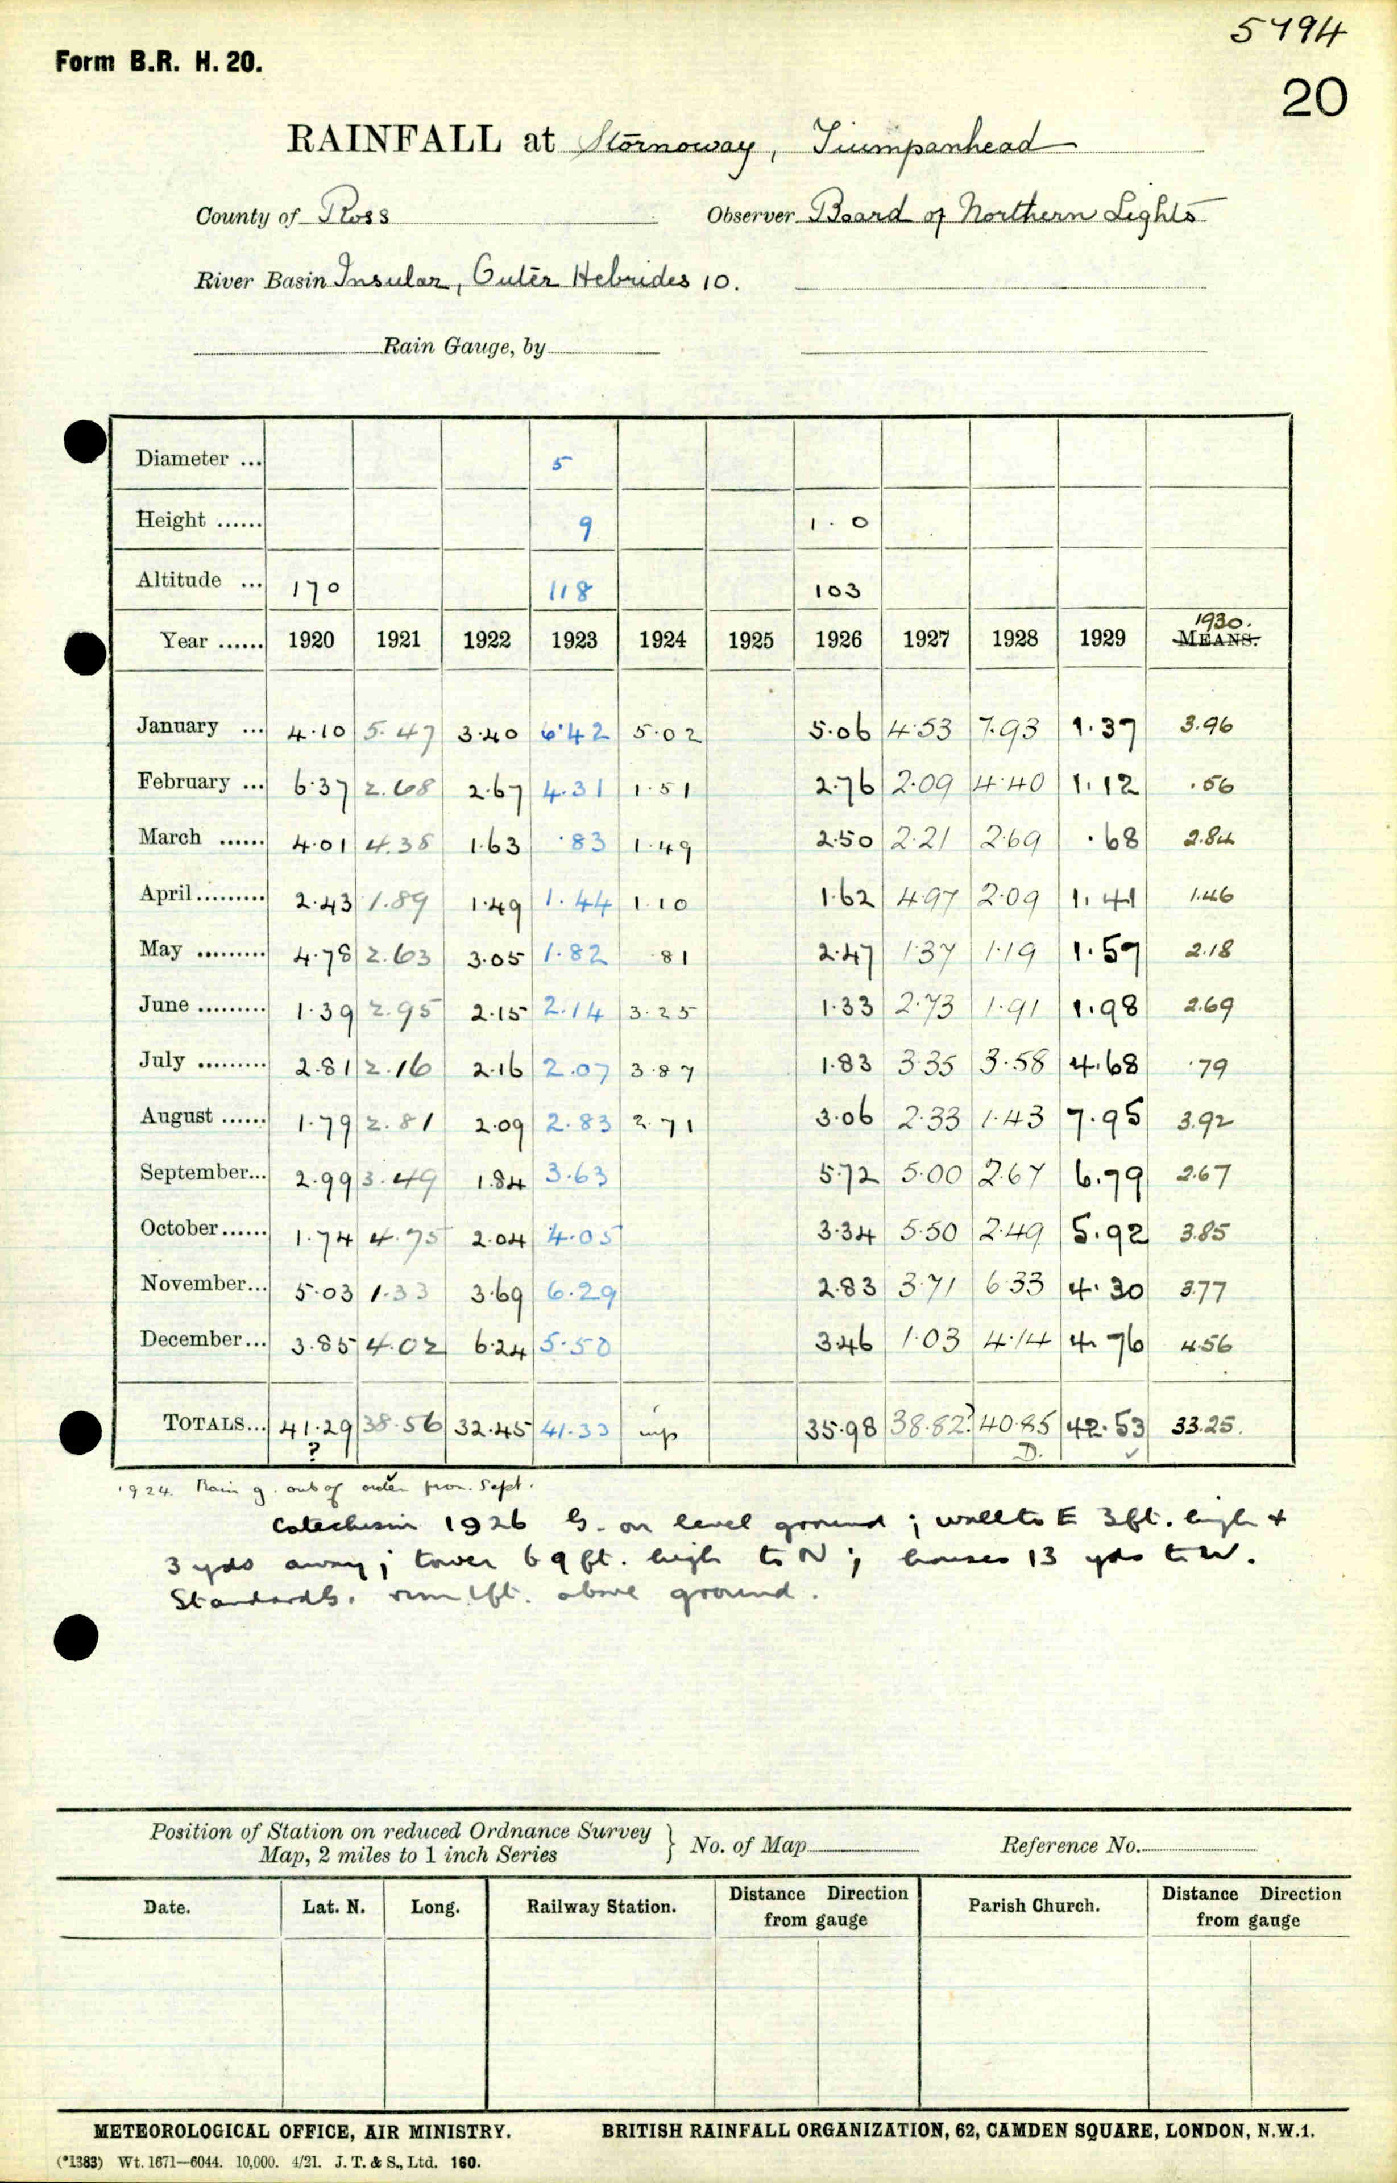 5794
Form B.R. H. 20.
20
RAINFALL at Stornoway, Tiumpanhead
County of Ross Observer Board of Northern Lights
River Basin Insular, Outer Hebrides 10.
Rain Gauge, by
Diameter ... 5
Height ...... 9 1.0
Altitude ... 170 118 103
Year ...... 1920 1921 1922 1923 1924 1925 1926 1927 1928 1929 1930. MEANS.
January ... 4.10 5.47 3.40 6.42 5.02 5.06 4.53 7.93 1.37 3.96
February ... 6.37 2.68 2.67 4.31 1.51 2.76 2.09 4.40 1.12 .56
March ...... 4.01 4.38 1.63 .83 1.49 2.50 2.21 2.69 .68 2.84
April ......... 2.43 1.89 1.49 1.44 1.10 1.62 4.97 2.09 1.41 1.46
May ......... 4.78 2.63 3.05 1.82 .81 2.47 1.37 1.19 1.57 2.18
June ......... 1.39 2.95 2.15 2.14 3.25 1.33 2.73 1.91 1.98 2.69
July ......... 2.81 2.16 2.16 2.07 3.87 1.83 3.35 3.58 4.68 .79
August ...... 1.79 2.81 2.09 2.83 2.71 3.06 2.33 1.43 7.95 3.92
September... 2.99 3.49 1.84 3.63 5.72 5.00 2.67 6.79 2.67
October...... 1.74 4.75 2.04 4.05 3.34 5.50 2.49 5.92 3.85
November... 5.03 1.33 3.69 6.29 2.83 3.71 6.33 4.30 3.77
December... 3.85 4.02 6.24 5.50 3.46 1.03 4.14 4.76 4.56
TOTALS... 41.29 38.56 32.45 41.33 imp 35.98 38.82? 40.85 42.53 33.25.
? D. ✓
1924. Rain g. out of order from Sept.
Catechism 1926 G. on level ground; wall to E 3ft. high &
3 yds away; tower 69ft. high to N; houses 13 yds to W.
Standard G. rim 1ft. above ground.
Position of Station on reduced Ordnance Survey
Map, 2 miles to 1 inch Series } No. of Map Reference No.
Date. Lat. N. Long. Railway Station. Distance Direction from gauge Parish Church. Distance Direction from gauge
METEOROLOGICAL OFFICE, AIR MINISTRY. BRITISH RAINFALL ORGANIZATION, 62, CAMDEN SQUARE, LONDON, N.W.1.
(*1383) Wt. 1671—6044. 10,000. 4/21. J. T. & S., Ltd. 160.